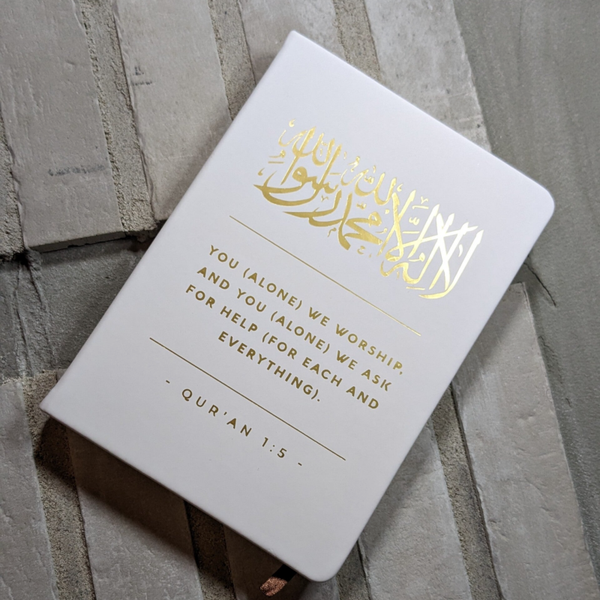 لا إله إلا الله محمد رسول الله
YOU (ALONE) WE WORSHIP,
AND YOU (ALONE) WE ASK
FOR HELP (FOR EACH AND
EVERYTHING).
- QUR'AN 1:5 -